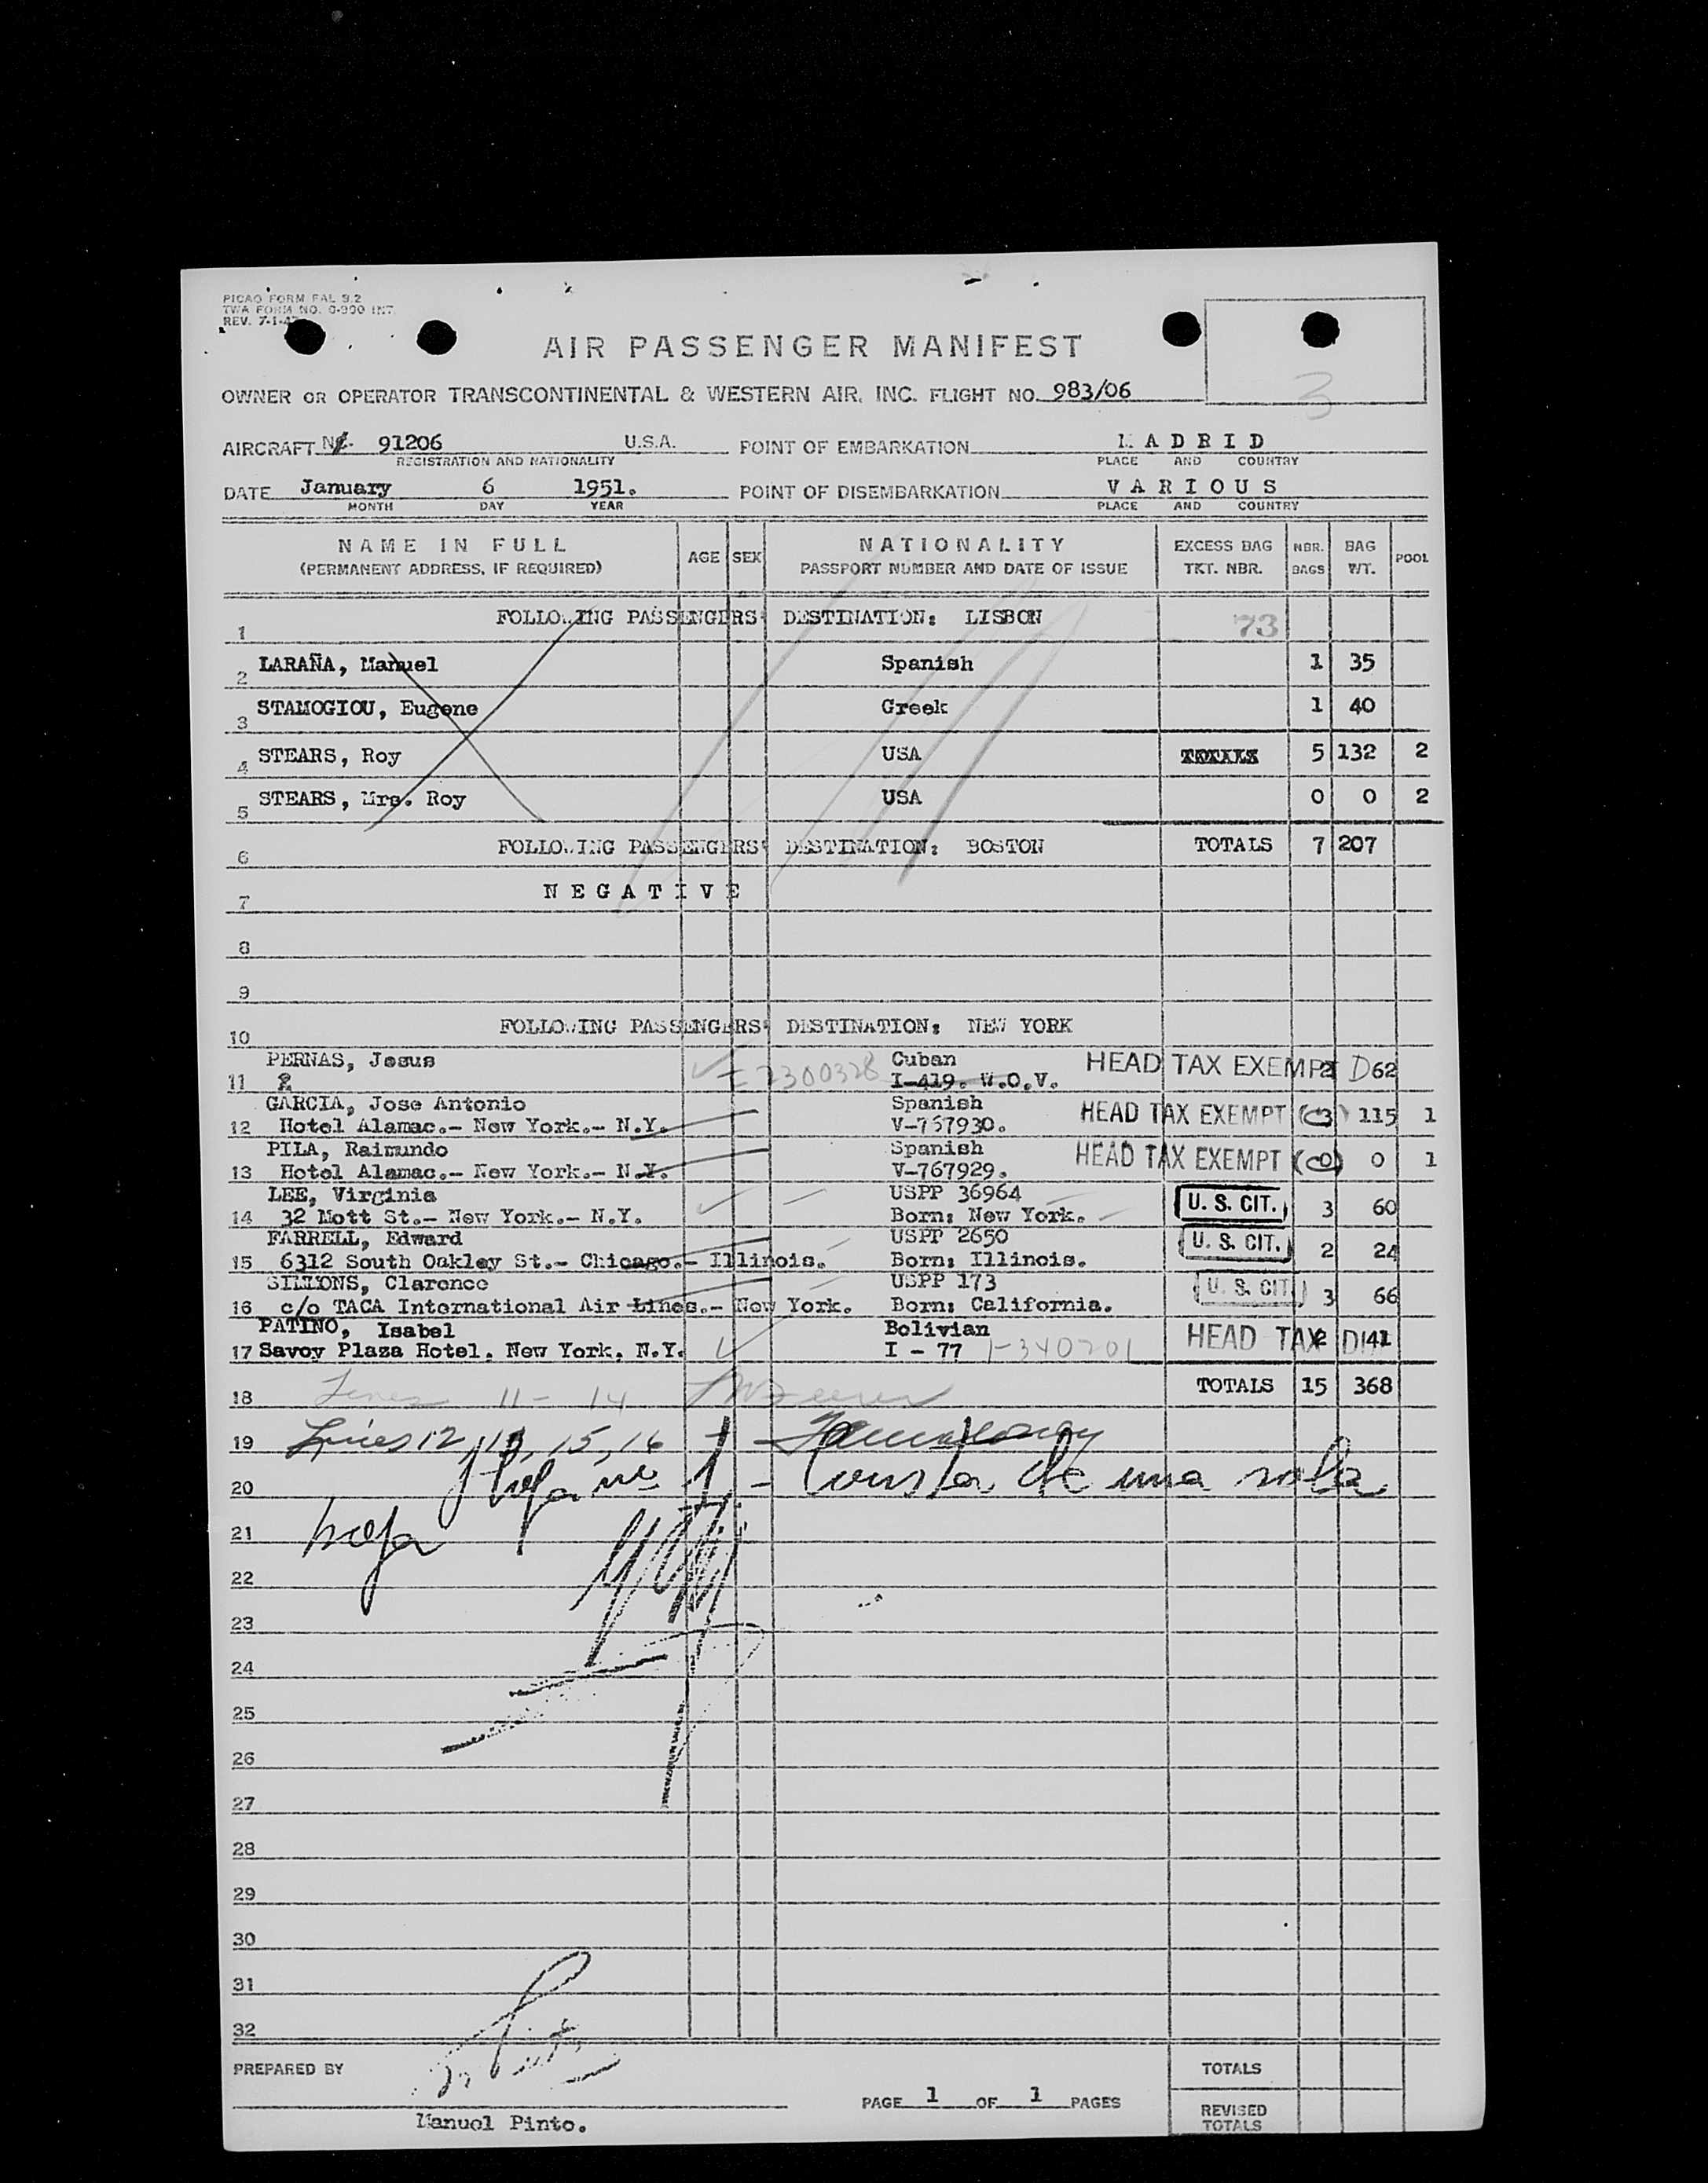 PICAO FORM FAL 9.2
TWA FORM NO. 0-900 INT.
REV. 7-1-47
AIR PASSENGER MANIFEST
3
OWNER OR OPERATOR TRANSCONTINENTAL & WESTERN AIR, INC. FLIGHT NO. 983/06
AIRCRAFT 91206 U.S.A. POINT OF EMBARKATION MADRID
REGISTRATION AND NATIONALITY PLACE AND COUNTRY
DATE January 6 1951. POINT OF DISEMBARKATION VARIOUS
MONTH DAY YEAR PLACE AND COUNTRY
NAME IN FULL AGE SEX NATIONALITY EXCESS BAG NBR. BAG POOL
(PERMANENT ADDRESS, IF REQUIRED) PASSPORT NUMBER AND DATE OF ISSUE TKT. NBR. BAGS WT.
1 FOLLOWING PASSENGERS' DESTINATION: LISBON 73
2 LARAÑA, Manuel Spanish 1 35
3 STAMOGIOU, Eugene Greek 1 40
4 STEARS, Roy USA TOTALS 5 132 2
5 STEARS, Mrs. Roy USA 0 0 2
6 FOLLOWING PASSENGERS' DESTINATION: BOSTON TOTALS 7 207
7 NEGATIVE
8
9
10 FOLLOWING PASSENGERS' DESTINATION: NEW YORK
PERNAS, Jesus Cuban HEAD TAX EXEMPT 2 D62
11 I-419. W.O.V.
GARCIA, Jose Antonio Spanish HEAD TAX EXEMPT (C3) 115 1
12 Hotel Alamac.- New York.- N.Y. V-767930.
PILA, Raimundo Spanish HEAD TAX EXEMPT (C0) 0 1
13 Hotel Alamac.- New York.- N.Y. V-767929.
LEE, Virginia USPP 36964 U. S. CIT. 3 60
14 32 Mott St.- New York.- N.Y. Born: New York.
FARRELL, Edward USPP 2650 U. S. CIT. 2 24
15 6312 South Oakley St.- Chicago.- Illinois. Born: Illinois.
SILLIONS, Clarence USPP 173 U. S. CIT. 3 66
16 c/o TACA International Air Lines.- New York. Born: California.
PATINO, Isabel Bolivian HEAD TAX 2 D141
17 Savoy Plaza Hotel. New York. N.Y. I - 77 I-340201
18 Lines 11 - 14 TOTALS 15 368
19 Lines 12, 13, 15, 16
20 Hoja nº 1 - Consta de una sola
21 hoja
22
23
24
25
26
27
28
29
30
31
32
PREPARED BY TOTALS
PAGE 1 OF 1 PAGES
Manuel Pinto. REVISED TOTALS